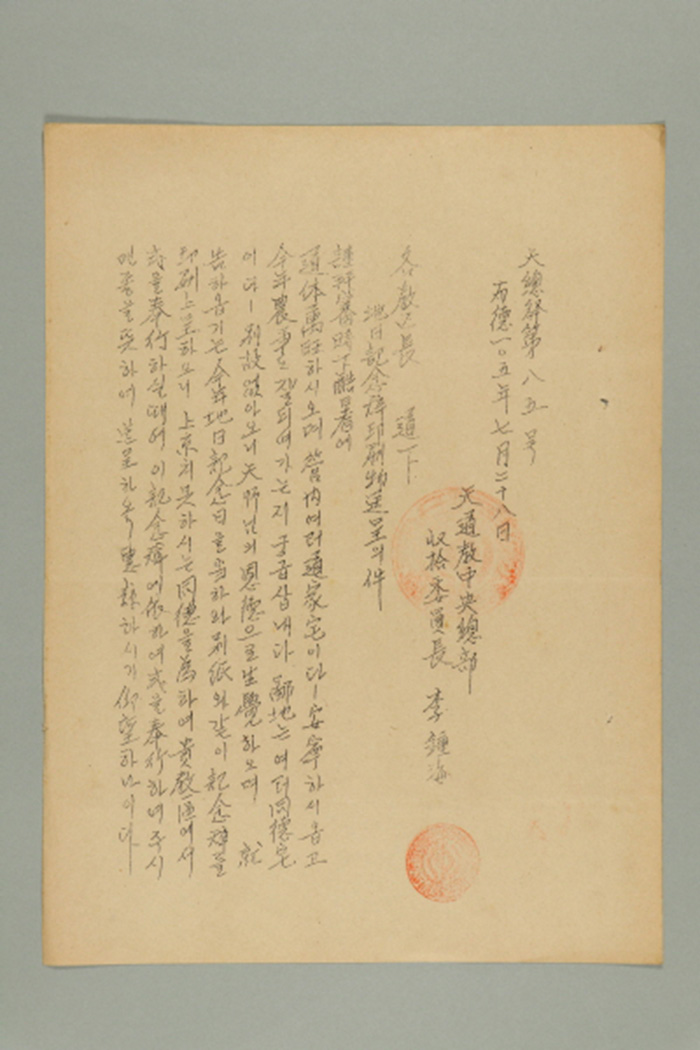 天總發第八五号
布德一〇五年七月二十八日
天道敎中央總部
收拾委員長 李鍾海
各敎区長 道下
地日記念辞印刷物送呈의件
謹拜審 時下酷暑에
道体萬旺하시오며 營內여러道家宅이다ㅣ安寧하시옵고
今年農事도 잘되여가는지 궁급삽내다 鄙地는여러同德宅
이다ㅣ別故없아오니 天師님의恩德으로生覺하오며 就
告하옵기는 今年地日記念日을 別紙와같이 記念辞를
印刷上呈하오니 上京치못하시는同德을爲하여 貴敎區에서
式을奉行하실때에 이記念辞에依하여式을奉行하여주시
하여 送呈하오 하시기仰望하나이다